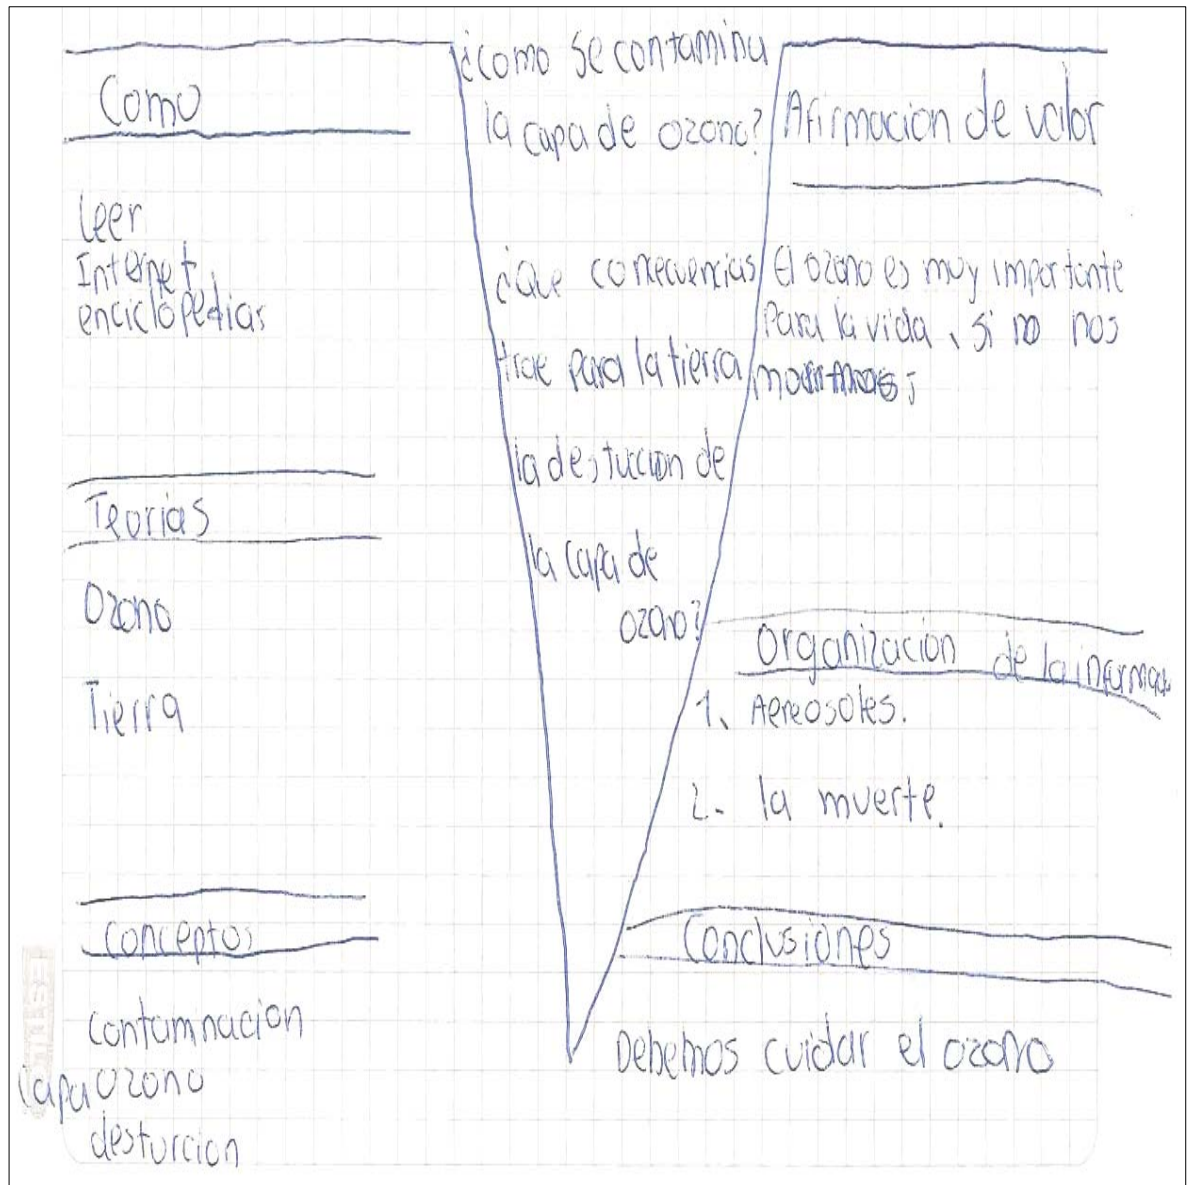 Como
leer
Internet
enciclopedias
Teorias
Ozono
Tierra
Conceptos
Contamnacion
Capa Ozono
desturcion
¿como se contamina
la capa de ozono?
¿Que conecuencias
trae para la tierra
la destuccion de
la capa de
ozono?
Afirmacion de valor
El ozono es muy importante
para la vida, si no nos
Organizacion de la informac
1. Aereosoles.
2. la muerte.
Conclusiones
Debemos cuidar el ozono